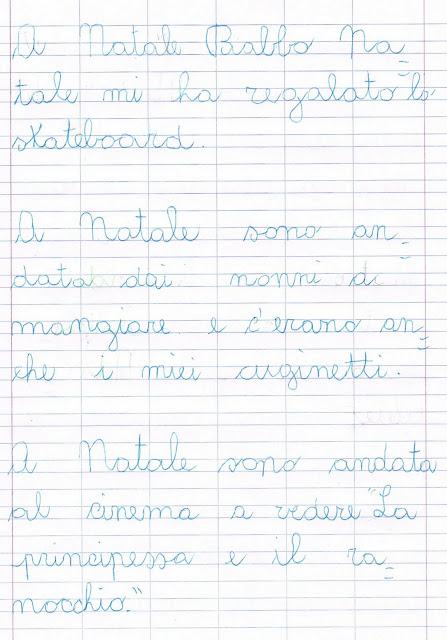 A Natale Babbo Na=
tale mi ha regalato lo
skateboard.
A Natale sono an=
data dai nonni di
mangiare e c'erano an=
che i miei cuginetti.
A Natale sono andata
al cinema a vedere "La
principessa e il ra=
nocchio."